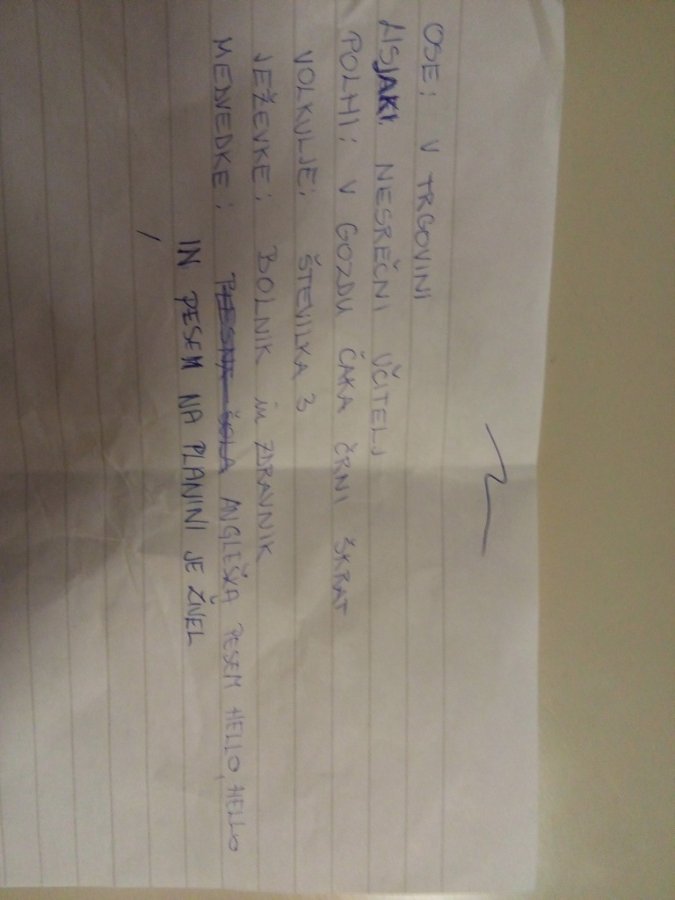 OSE: V TRGOVINI
LISJAKI: NESREČNI UČITELJ
POLHI: V GOZDU ČAKA ČRNI ŠKRAT
VOLKULJE: ŠTEVILKA 3
JEŽEVKE: BOLNIK in ZDRAVNIK
MEDVEDKE: PLESNA ŠOLA ANGLEŠKA PESEM HELLO, HELLO
IN PESEM NA PLANINI JE ŽIVEL